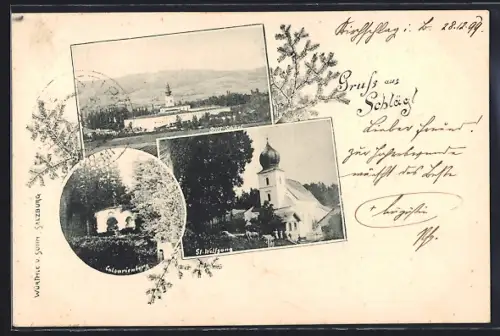 Kirschschlag i. B. 28.12.99.
Gruß aus
Schläg!
Lieber Freund!
zur Jahreswende
wünscht das Beste
Augustin
St. Wolfgang
Calvarienberg
WÜRTHLE U. SOHN SALZBURG